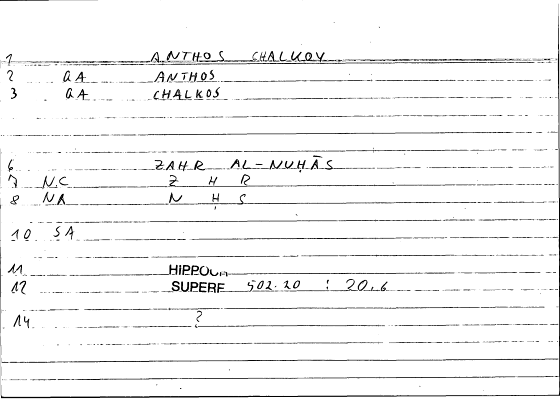 1 ANTHOS CHALKOY
2 GA ANTHOS
3 GA CHALKOS
6 ZAHR AL-NUḤĀS
7 NC Z H R
8 NA N Ḥ S
10 SA
11 HIPPOCR
12 SUPERF 502.20 : 20,6
14 ?